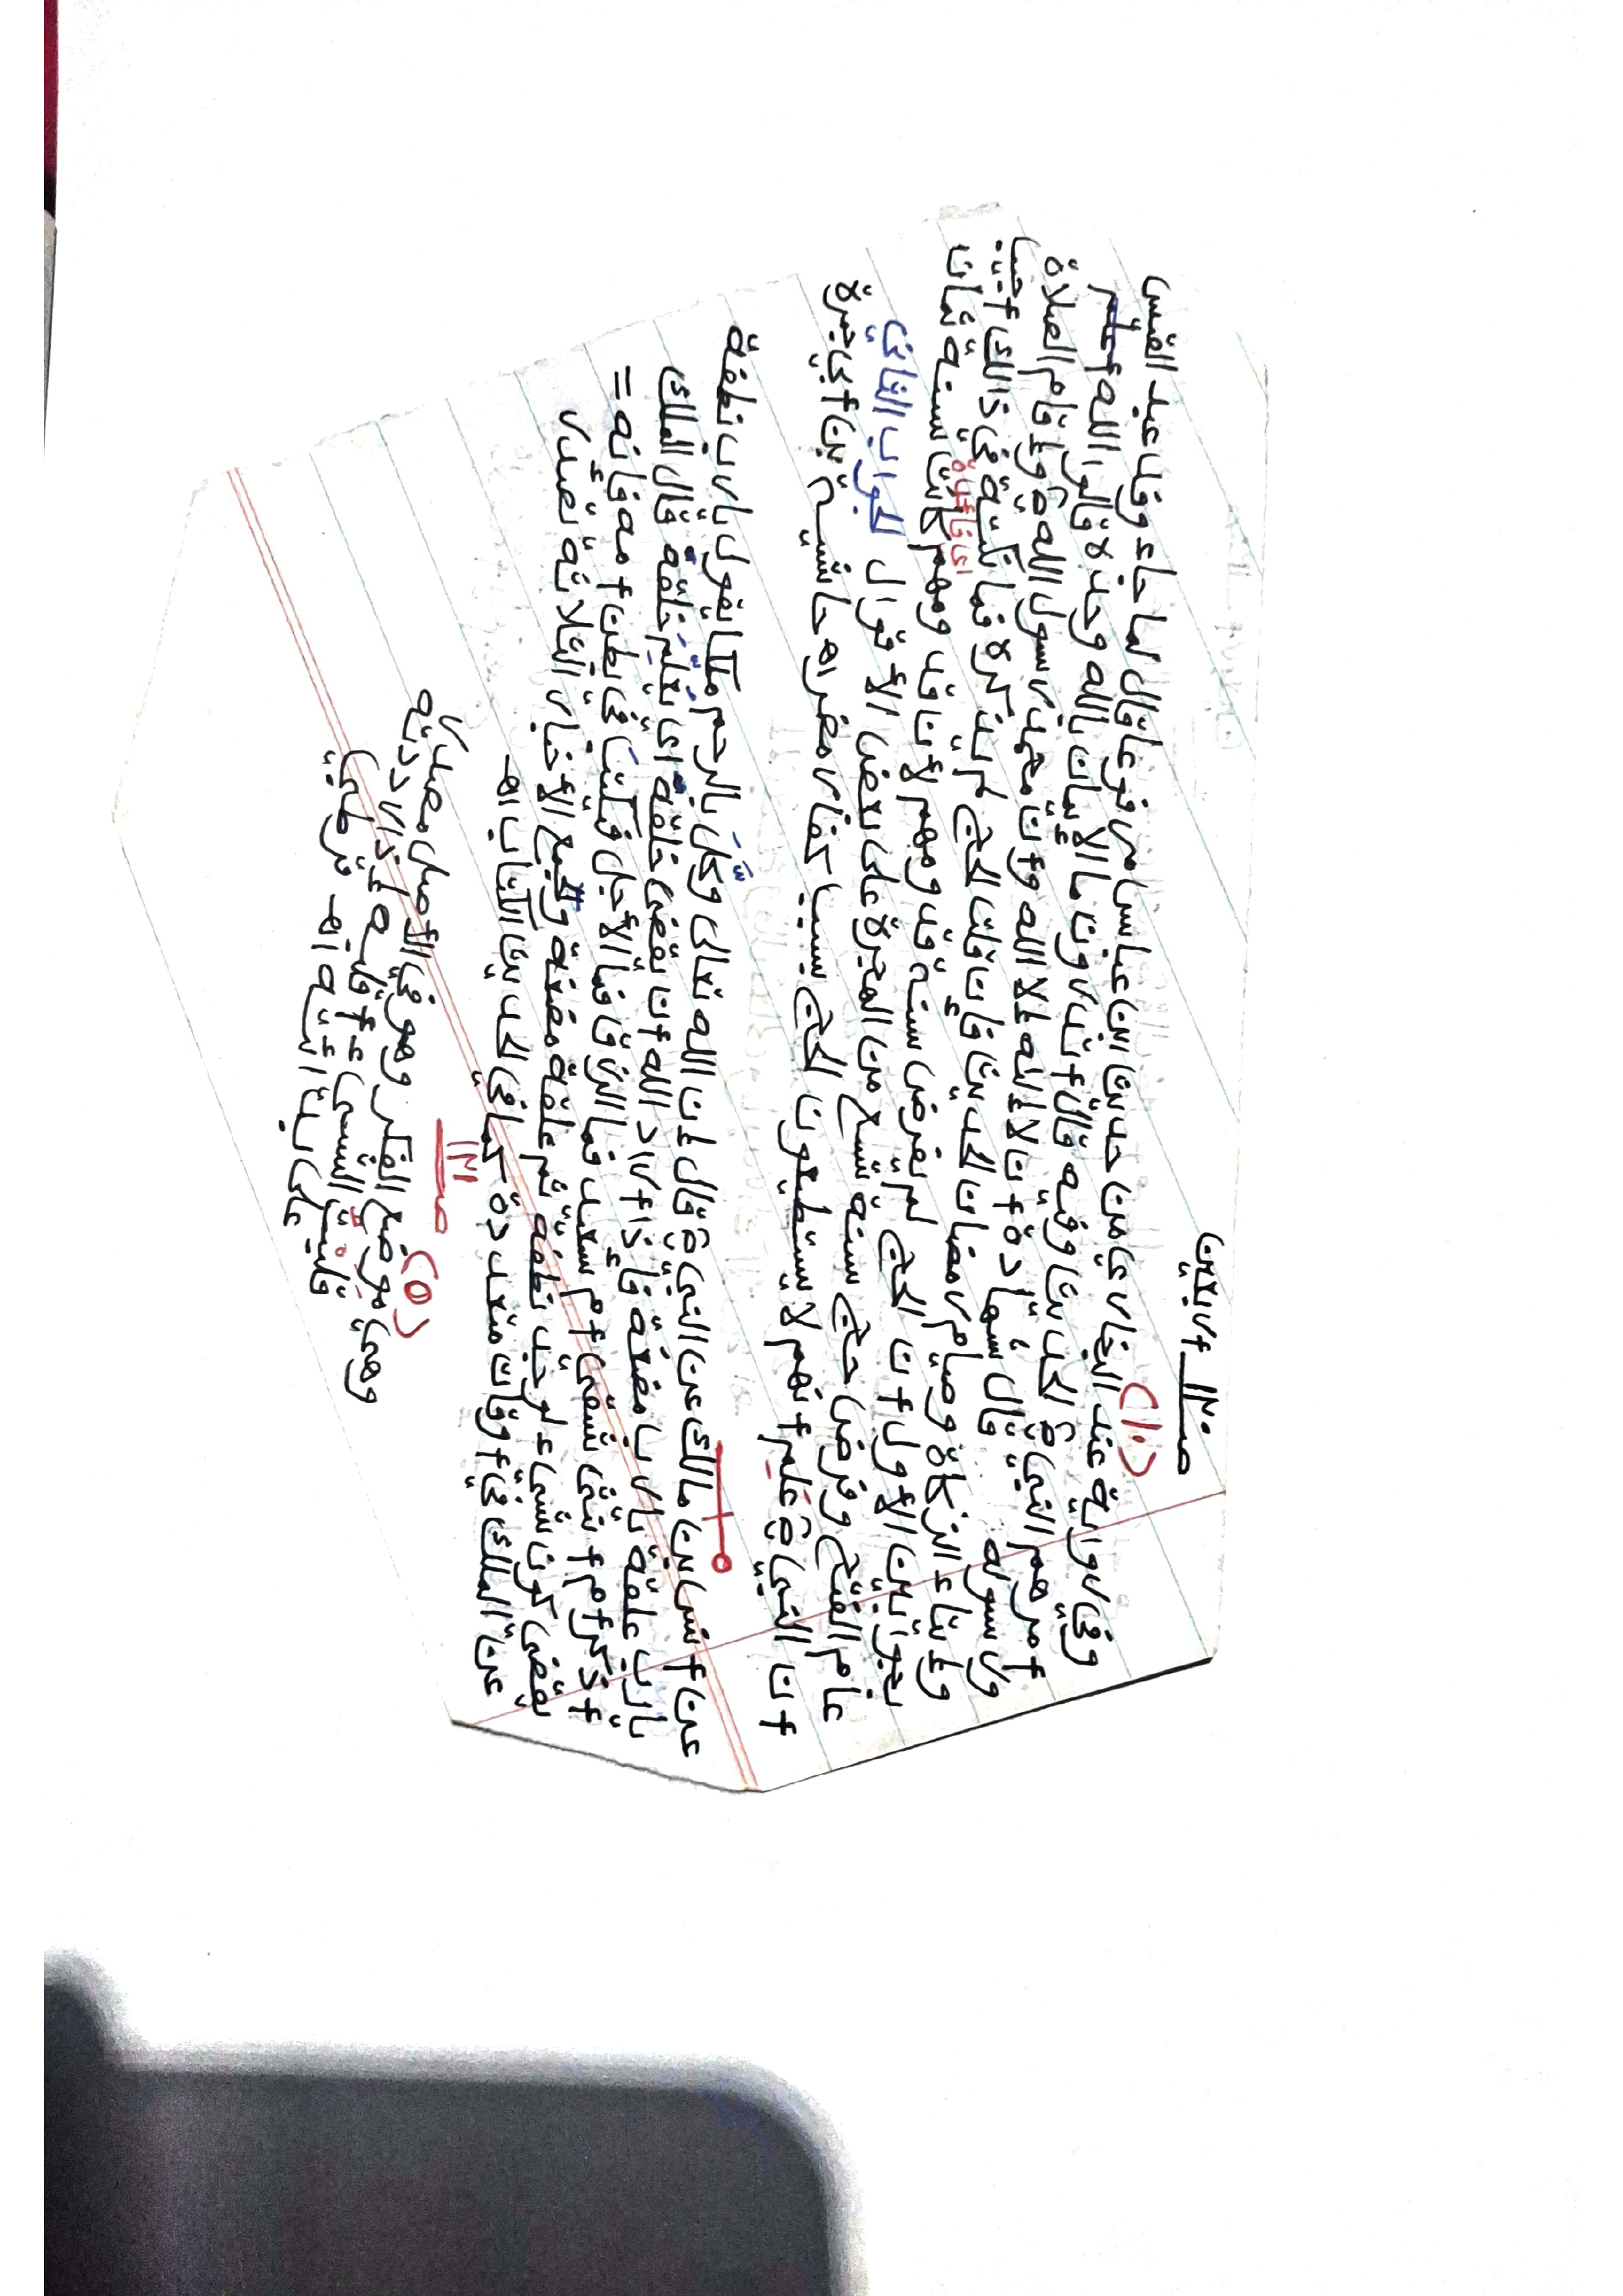 صـ١٢ أربعين
(١٠)
وفي رواية عند البخاري من حديث ابن عباس مرفوعا قال لما جاء وفد عبد القيس
أمرهم النبي ﷺ الحديث وفيه قال أتدرون ما الإيمان بالله وحده قالوا الله أعلم
ورسوله قال شهادة أن لا إله إلا الله وأن محمد رسول الله ﷺ وإقام الصلاة
وإيتاء الزكاة وصيام رمضان الحديث فإن قلت الحج لم يذكره فما فائدته في ذالك أجيب
بجوابين الأول أن الحج لم يفرض سنة وفدومهم لأن وفدومهم كانت سنة ثمان
اى فائدة
عام الفتح وفرض حج سنة تسع من الهجرة على بعض الأقوال الجواب الثاني
أن النبي ﷺ علم أنهم لا يستطيعون الحج سبب كفار مضر اهـ حاشية بن أبي جمرة
عن أنس بن مالك عن النبي ﷺ قال إن الله تعالى وكّل بالرحم ملكا يقول يارب نطفة
يارب علقة يارب مضغة فإذا أراد الله أن يقضي خلقه اى يتم خلقه قال الملك
أذكر أم أنثى شقي أم سعيد فما الرزق فما الأجل فيكتب في بطن أمه فإنه =
يقضي كون شيء لوجد نطفة ثم علقة مضغة وجميع الأخبار الثلاثة تصدر
عن الملك في أوقات متعددة كما في الحديث الكتاب اهـ
صـ١٣١
(٥)
وهي موضع الفكر وهو في الأصل مصدر
قلبت الشيء أقلبه إذا رددته
على بدأ أنثيه اهـ قرطبي